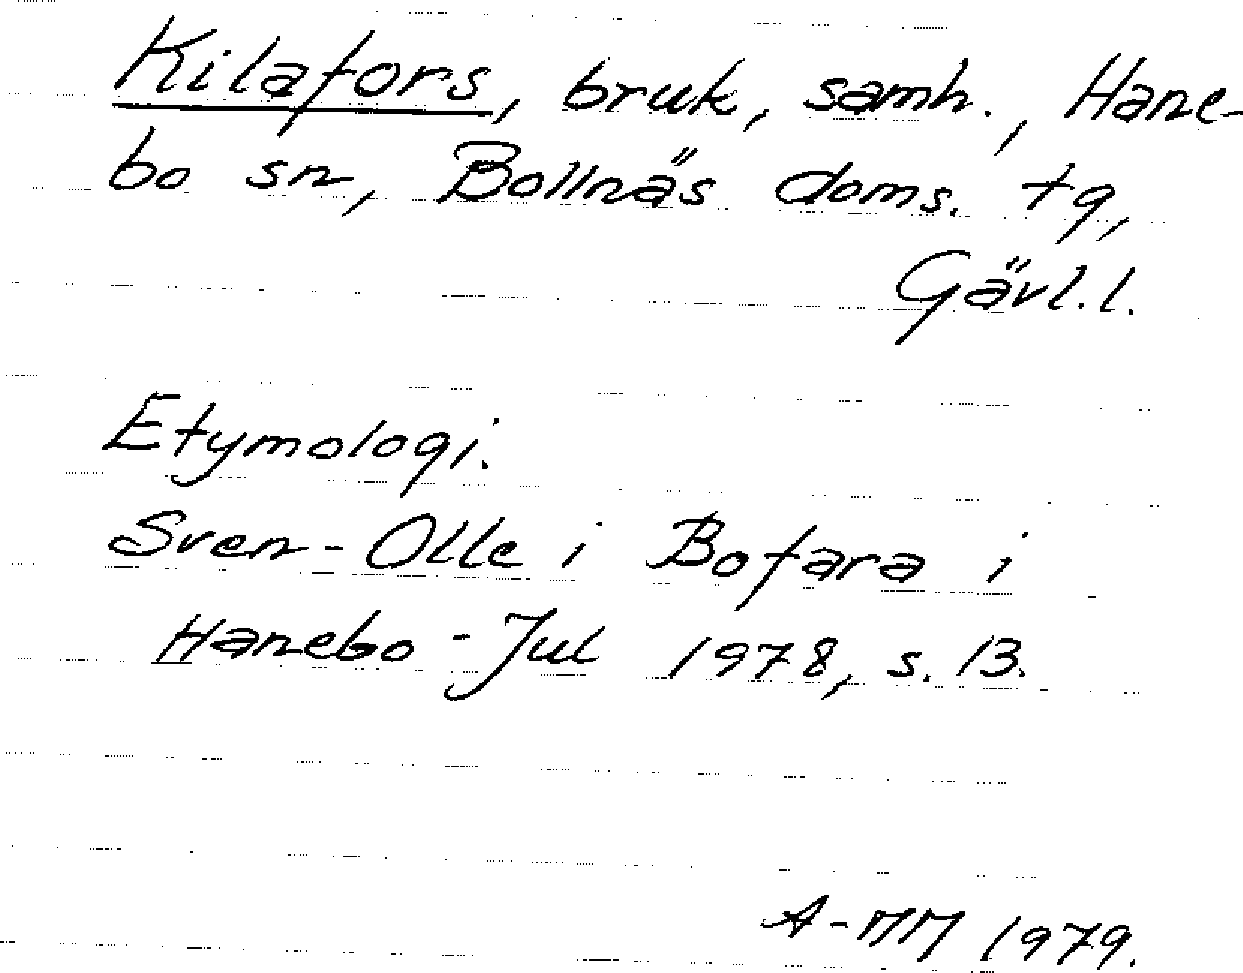 Kilafors, bruk, samh., Hane-
bo sn, Bollnäs doms. tg,
Gävl.l.
Etymologi.
Sven-Olle i Bofara i
Hanebo-Jul 1978, s. 13.
A-MM 1979.